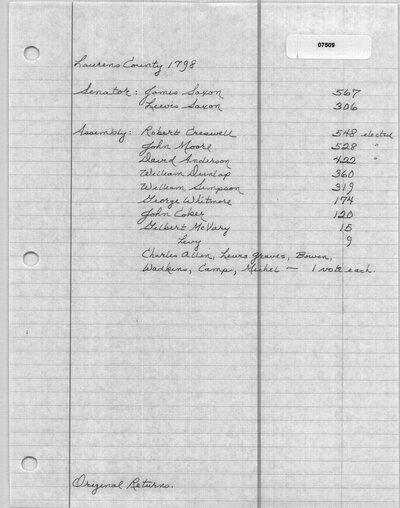 07509
Laurens County 1798
Senator: James Saxon 567
Lewis Saxon 306
Assembly: Robert Creswell 548 elected
John Moore 528 "
David Anderson 422 "
William Dunlap 360
William Simpson 319
George Whitmore 174
John Coker 120
Gilbert McVary 15
Levy 9
Charles Allen, Lewis Graves, Bowen,
Wadkins, Camp, Michel — 1 vote each.
Original Returns.